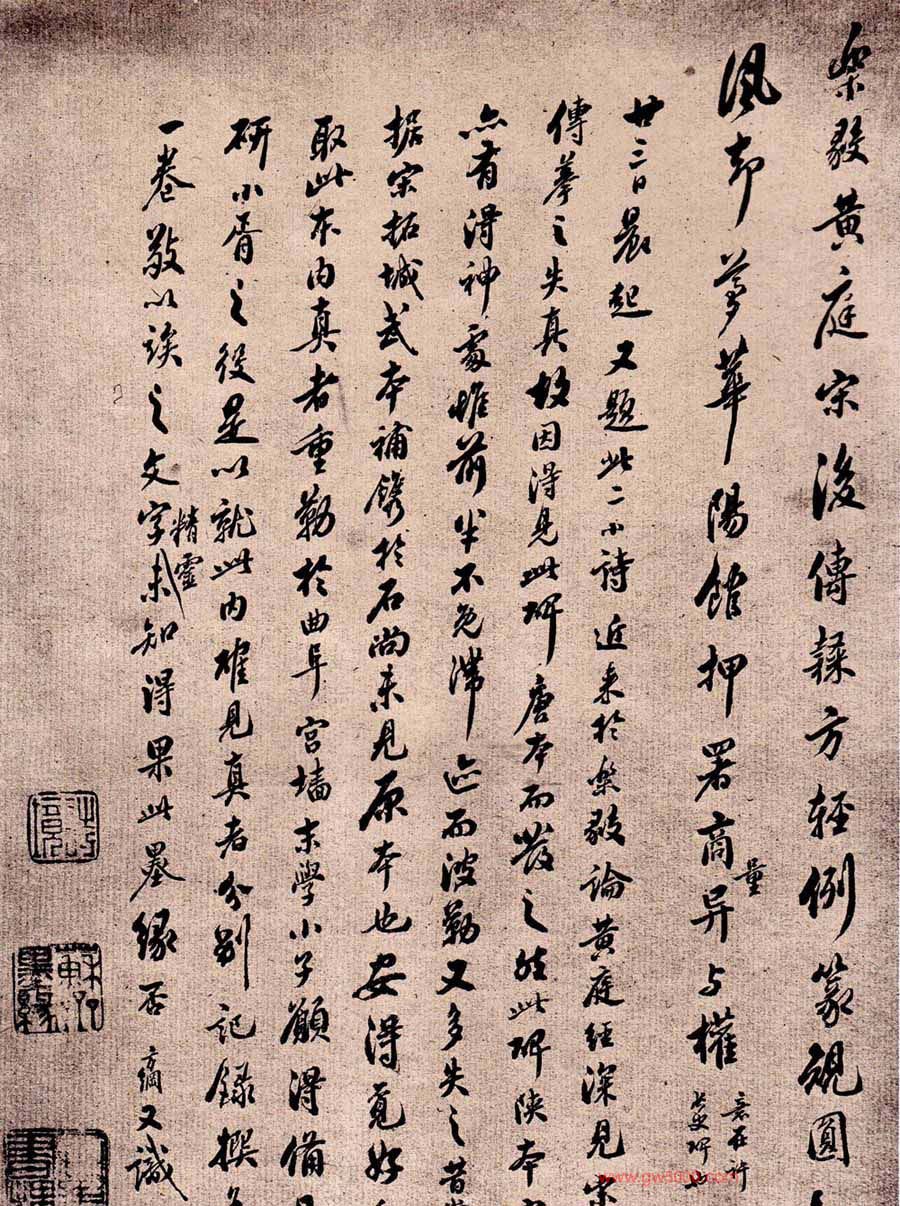 樂毅黃庭宋後傳隸方輕例篆規圓
風却夢華陽館押署商量异与權
意在許長史碑也
廿三日晨起又題此二小詩近来於樂毅論黃庭經深見宋
傳摹之失真故因得見此碑唐本而發之然此碑陝本
亦有得神處惟前半不免滯迹而波勒又多失之昔
据宋拓城武本補鐫於石尚未見原本也安得覓好
取此本内真者重勒於曲阜宫墙末學小子願得備
研小胥之役是以就此内確見真者分别記錄撰
一卷敬以俟之文字精靈未知得果此墨緣否 方綱又識
蘇米齋墨緣
www.gw3000.com